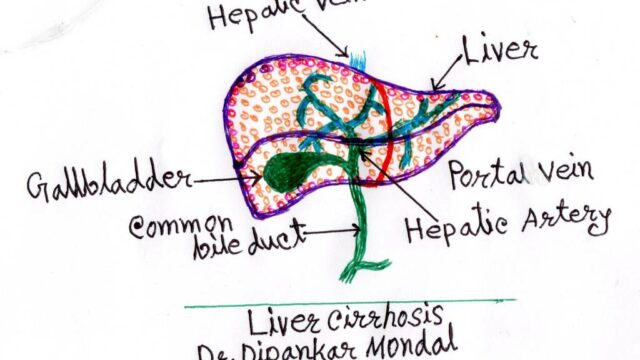 Hepatic Vein
Liver
Gallbladder
Portal Vein
Common
bile duct
Hepatic Artery
Liver Cirrhosis
Dr. Dipankar Mondal